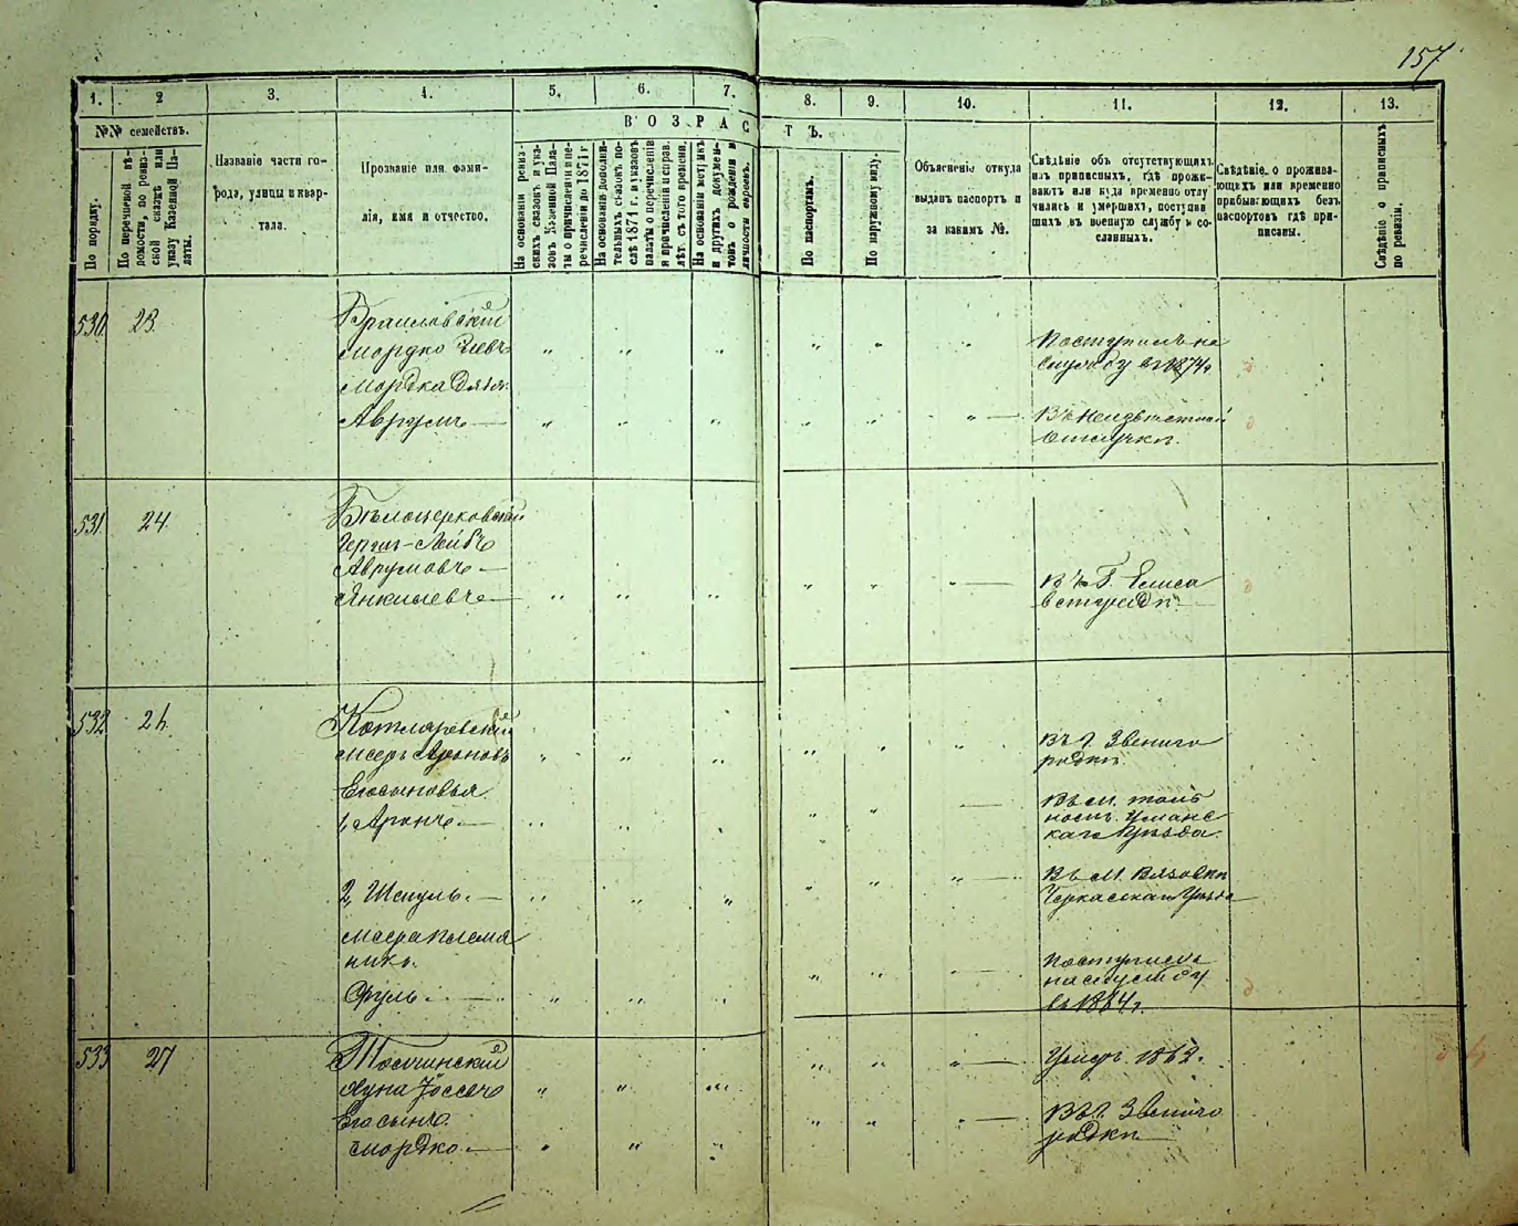 157
1. 2 3. 4. 5. 6. 7. 8. 9. 10. 11. 12. 13.
№№ семействъ.
По порядку.
По перечневой вѣ-
домости, по ревиз-
ской сказкѣ или
указу Казенной Па-
латы.
Названіе части го-
рода, улицы и квар-
тала.
Прозваніе или фами-
лія, имя и отчество.
ВОЗРАСТЪ.
На основаніи ревиз-
скихъ сказокъ и ука-
зовъ Казенной Пала-
ты о причисленіи и пе-
речисленіи до 1871 г
На основаніи дополни-
тельныхъ сказокъ по-
слѣ 1871 г. и указовъ
палаты о перечисленіи
и причисленіи и справ.
лѣт. съ того времени.
На основаніи метрикъ
и другихъ докумен-
товъ о рожденіи и
личности евреевъ.
По паспортамъ.
По наружному виду.
Объясненіе откуда
выданъ паспортъ и
за какимъ №.
Свѣдѣніе объ отсутствующихъ
изъ приписныхъ, гдѣ прожи-
ваютъ или куда временно отлу
чились и умершихъ, поступив
шихъ въ военную службу и со-
сланныхъ.
Свѣдѣніе о прожива-
ющихъ или временно
прибывающихъ безъ
паспортовъ гдѣ при-
писаны.
Свѣдѣніе о приписныхъ
по ревизіи.
530 23.
Браиловскій
Мордко
Мордка
Аврумъ
Поступилъ на
службу въ 1874 г
Въ неизвѣстной
отлучки.
531 24.
Бѣлоцерковскій
Гершъ-Лейбъ
Аврумовъ
Янкилевъ
Въ Г. Елиса
ветградѣ
532
Котляревскій
Мееръ Ароновъ
Его сыновья
1, Аронъ
2, Шмуль
Меера племя
никъ
Фуль
Въ г. Звениго
родки
Въ м. Таль
номъ Уманс
каго Уѣзда.
Въ м. Вязовки
Черкасскаго Уѣзда
Поступилъ
на службу
533 27
Іоссевъ
Его сынъ
Мордко
Умеръ 1862.
Въ г. Звениго
родки